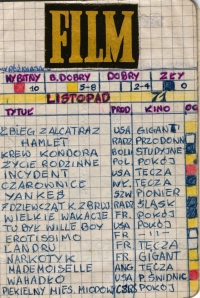 FILM
WYBITNY B.DOBRY DOBRY ZŁY
10 5-8 2-4 0
LISTOPAD
TYTUŁ PROD. KINO OC
ZBIEG Z ALCATRAZ USA GIGANT
HAMLET RADZ PRZODOWN
KREW KONDORA BOLIW STUDYJNE
ŻYCIE RODZINNE POL. POKÓJ
INCYDENT USA TĘCZA
CZAROWNICE WŁ. TĘCZA
YANKES SZW PIONIER
DZIEWCZĄT Z BRUJ RADZ ŚLĄSK
WIELKIE WAKACJE FR. POKÓJ
TU BYŁ WILLE BOY USA POKÓJ
EROTISSIMO FR.
LANDRU FR. TĘCZA
NARKOTYK FR. GIGANT
MADEMOISELLE ANG TĘCZA
WAHADŁO USA P. ŚWIDNIC
PIEKIELNY MIES. MIODOWY POKÓJ